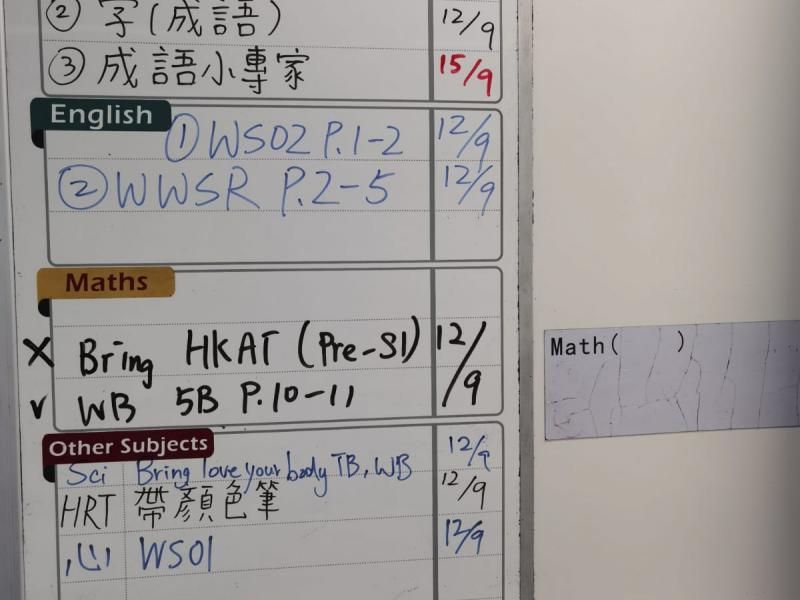 ② 字(成語) 12/9
③ 成語小專家 15/9
English
① WS02 P.1-2 12/9
② WWSR P.2-5 12/9
Maths
X Bring HKAT (Pre-S1) 12/9
v WB 5B P.10-11
Math( )
Other Subjects
Sci Bring love your body TB, WB 12/9
HRT 帶顏色筆 12/9
心 WS01 12/9